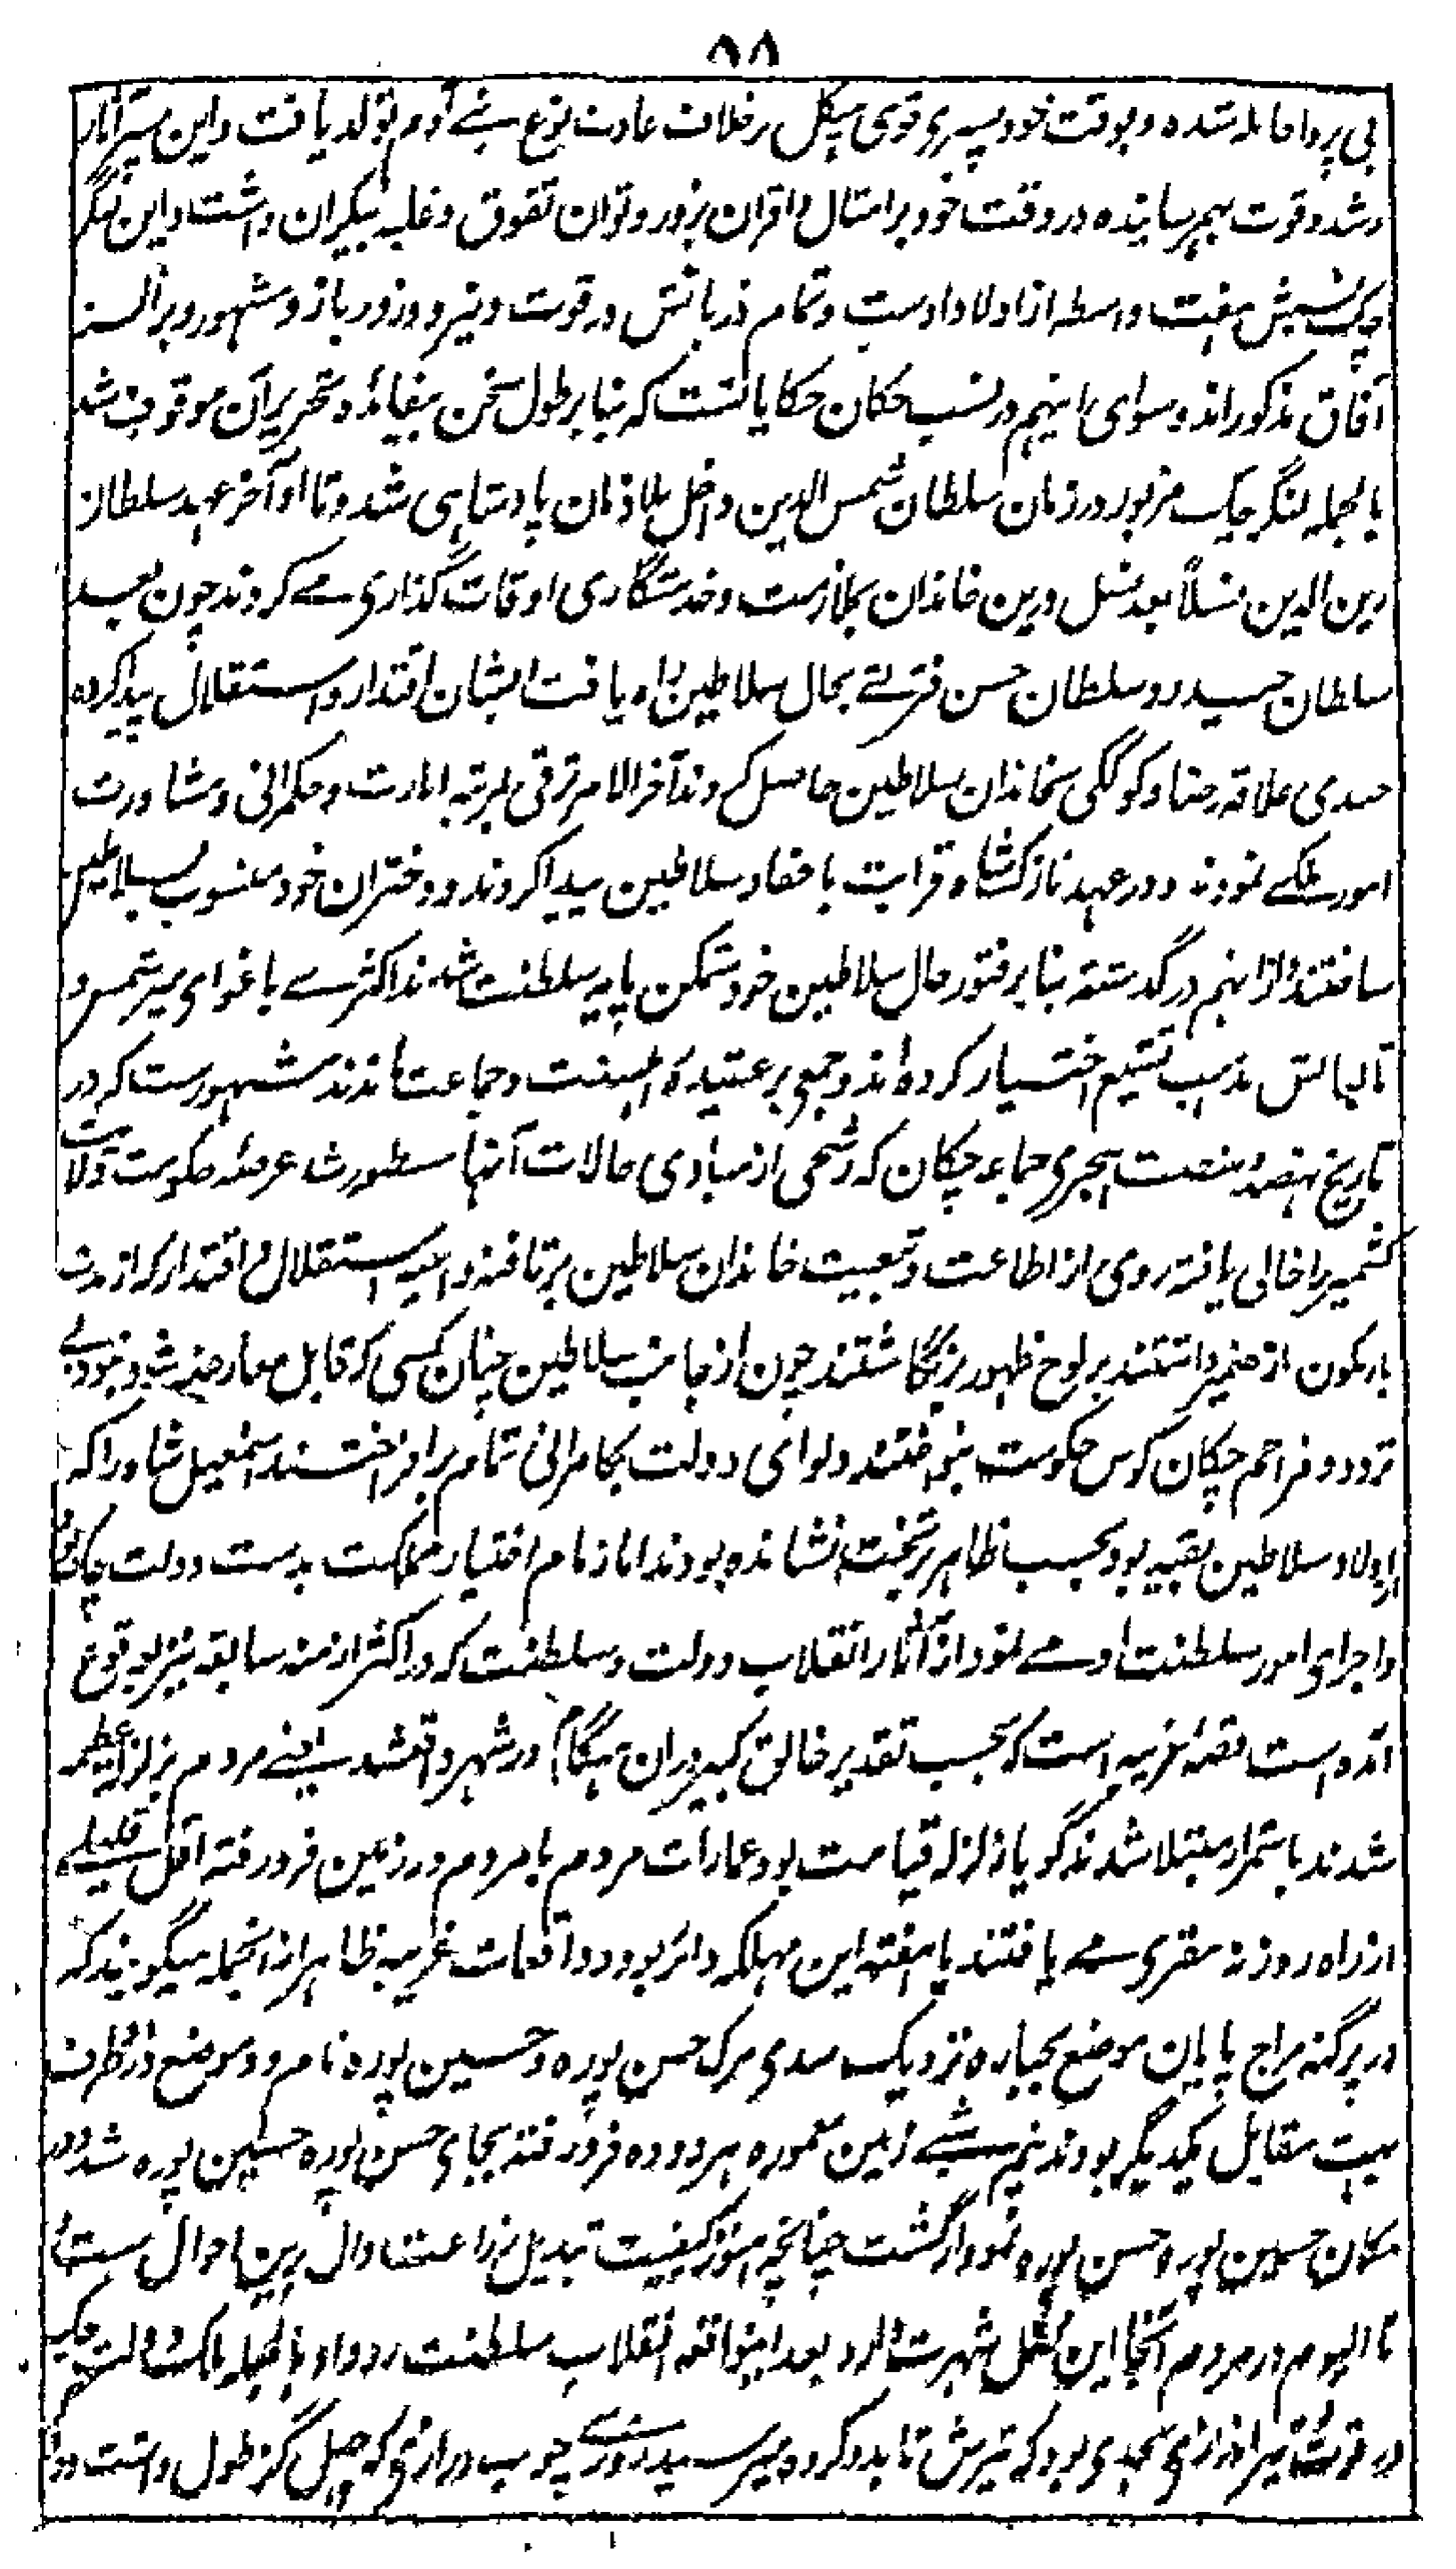 ۸۸
بی پروا حامله شده و بوقت خود پسری قوی هیکل بر خلاف عادت نوع بنے آدم تولد یافت و این پسر آثار
رشد و قوت بهم رسانیده در وقت خود بر امثال و اقران بزور و توان تفوق و غلبه بیکران داشت و این لنگر
چک نسبش هفت واسطه از اولاد اوست و تمام ذریاتش در قوت و نیرو و زور بازو مشهور و بر السنه
آفاق مذکور اند و سوای اینهم در نسب چکان حکایاتست که بنا بر طول سخن بیفایده و تحریر آن موقوف شد
بالجمله لنگر چک مزبور در زمان سلطان شمس الدین داخل ملازمان پادشاهی شد و تا او آخر عهد سلطان
زین الدین نسلاً بعد نسل درین خاندان بملازمت و خدمتگاری اوقات گذاری مے کردند چون بعد
سلطان حیدر و سلطان حسن فترتے بحال سلاطین راه یافت ایشان اقتدار و استقلال پیدا کرده
حدی علاقه رضا و کوکگی بخاندان سلاطین حاصل کردند آخر الامر ترقی بمرتبه امارت و حکمرانی و مشاورت
امور ملکے نمودند و در عهد نازکشاه قرابت با حفاد سلاطین پیدا کردند و دختران خود منسوب بسلاطین
ساختند و ازا ینهم در گذشته بنا بر فتور حال سلاطین خود متمکن پایه سلطنت شدند اکثرے باغوای میر شمس و
تالبالش مذهب تشیع اختیار کرده اند و جمعی بر عقیدۀ اهلسنت و جماعت ماندند مشهورست که در
تاریخ نهصد و شصت هجری جماعه چکان که رشحی از مبادی حالات آنها مسطورست عرصه حکومت ولایت
کشمیر را خالی یافته روی از اطاعت و تبعیت خاندان سلاطین بر تافته داعیه استقلال و اقتدار که از مدت
بار مکون از ضمیر داشتند بر لوح ظهور بر نگاشتند چون از جانب سلاطین چنان کسی که قابل معارضه شود نبود بے
تردد و مزاحم چکان کوس حکومت بنواختند و لوای دولت بکامرانی تمام بر افراختند اسمعیل شاه را که
از اولاد سلاطین بقیه بود بحسب ظاهر بر تخت نشانده بودند اما زمام اختیار مملکت بدست دولت چک
و اجرای امور سلطنت او مے نمود از آثار انقلاب دولت و سلطنت که در اکثر ازمنه سابقه نیز بوقوع
آمده است قصه غریبه است که بحسب تقدیر خالق کبیر در ان هنگام در شهر واقعشد یعنے مردم بزلزله عظیمه
شدند باستمرار مبتلا شدند گویا زلزله قیامت بود عمارات مردم با مردم در زمین فرو رفته اقل قلیلے
از راه روزنه مقری مے یافتند یا هفته این مهلکه دائر بود و واقعات غریبه ظاهر از انجمله میگویند که
در پرگنه مراج پایان موضع بجباره نزدیک سدی مرک حسن پوره و حسین پوره نام دو موضع دو طرف
بهت مقابل یکدیگر بودند نیم شبے زمین معموره هر دو ده فرو رفته بجای حسن پوره حسین پوره شد و در
مکان حسین پوره حسن پوره نمودار گشت چنانچه هنوز کیفیت تبدیل زراعت دال برین احوال ست
تا الیوم در مردم آنجا این مثل شهرت دارد بعد اینواقعه انقلاب سلطنت رو داد بالجمله ملک دولت چک
در قوت تیراندازی بحدی بود که تیرش تا بدو کروه میرسید روزے چوب درازی که چهل گز طول داشت و دو